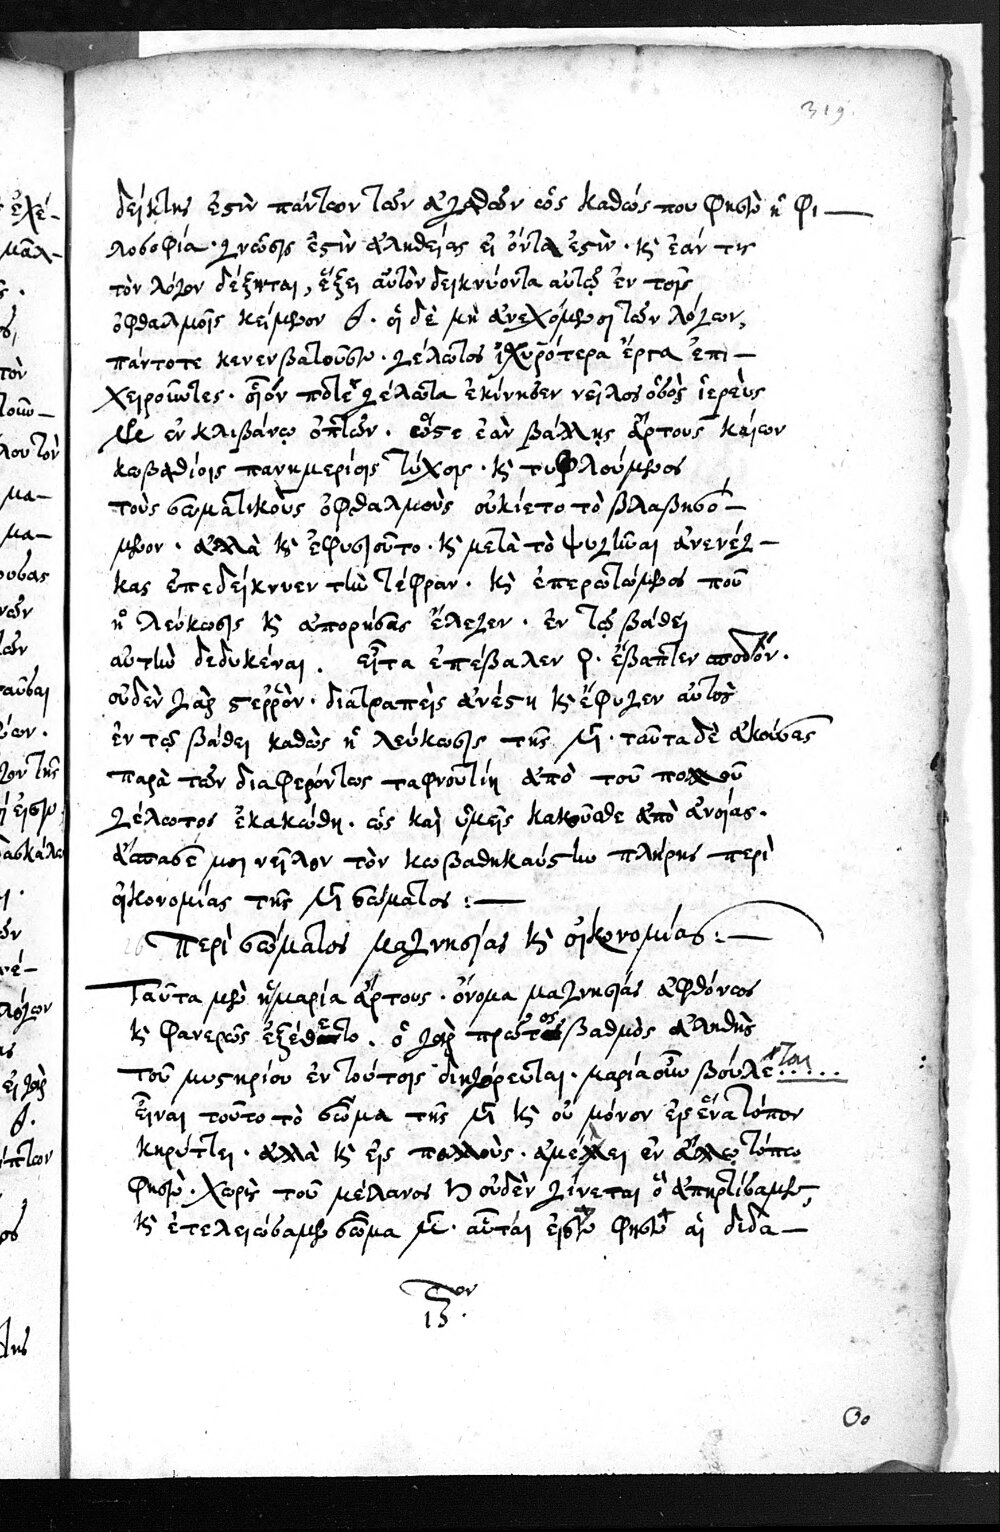 319
δείκτης ἐστὶν πάντων τῶν ἀγαθῶν ὡς καθώς που φησὶν ἡ φι
λοσοφία · γνῶσις ἐστὶν ἀληθείας εἰ ὄντα ἐστὶν · κ̀ ἐάν τις
τὸν λόγον δέξηται, ἕξει αὐτὸν δεικνύοντα αὐτῷ ἐν τοῖς
ὀφθαλμοῖς κείμενον · οἱ δὲ μὴ ἀνεχόμενοι τῶν λόγων,
πάντοτε κενενβατοῦσιν · γέλωτος ἰσχυρότερα ἔργα ἐπι
χειροῦντες · οἷόν ποτε γέλωτα ἐκίνησεν νεῖλος ὁ σὸς ἱερεὺς
ἐν κλιβάνῳ ὀπτῶν · ὥστε ἐὰν βάλῃς ἄρτους καίων
κωβαθίοις πανημερίοις τύχοις · κ̀ τυφλούμενος
τοὺς σωματικοὺς ὀφθαλμοὺς οὐκ ίετο τὸ βλαβησό
μενον · ἀλλὰ κ̀ ἐφυσιοῦτο · κ̀ μετὰ τὸ ψυγῆναι ἀνενέγ
κας ἐπεδείκνυεν τὴν τέφραν · κ̀ ἐπερωτώμενος ποῦ
ἡ λεύκωσις κ̀ ἀπορήσας ἔλεγεν · ἐν τῷ βάθει
αὐτὴν δεδυκέναι . εἶτα ἐπέβαλεν · ἔβαπτεν σποδόν ·
οὐδὲν γὰρ στερρὸν · διατραπεὶς ἀνέστη κ̀ ἔφυγεν αὐτὸς
ἐν τῷ βάθει καθὼς ἡ λεύκωσις τῆς · ταῦτα δὲ ἀκούσασ
παρὰ τῶν διαφερόντως ταφνουτίη ἀπὸ τοῦ πολλοῦ
γέλωτος ἐκακώθη · ὡς καὶ ὑμεῖς κακοῦσθε ἀπὸ ἀνοίας ·
ἄσπασέ μοι νεῖλον τὸν κωβαθηκαύστην πλήρης περὶ
οἰκονομίας τῆς σώματος :—
Περὶ σώματος μαγνησίας κ̀ οἰκονομίας :—
Ταῦτα μὲν ἡ μαρία ἄρτους · ὄνομα μαγνησίας ἀφθόνως
κ̀ φανερῶς ἐξέθετο . ὁ γὰρ πρῶτος βαθμὸς ἀληθὴς
τοῦ μυστηρίου ἐν τούτοις διηγόρευται · μαρία οὖν βούλεται
εἶναι τοῦτο τὸ σῶμα τῆς κ̀ οὐ μόνον εἰς ἕνα τόπον
κηρύττει · ἀλλὰ κ̀ εἰς πολλοὺς · ἀμέλλει ἐν ἄλλῳ τόπῳ
φησὶν · χωρὶς τοῦ μέλανος ♄ οὐδὲν γίνεται ὃ ἀπηρτίσαμεν,
κ̀ ἐτελειώσαμεν σῶμα · αὗται εἰσὶν φησὶν αἱ διδα
Ὅο